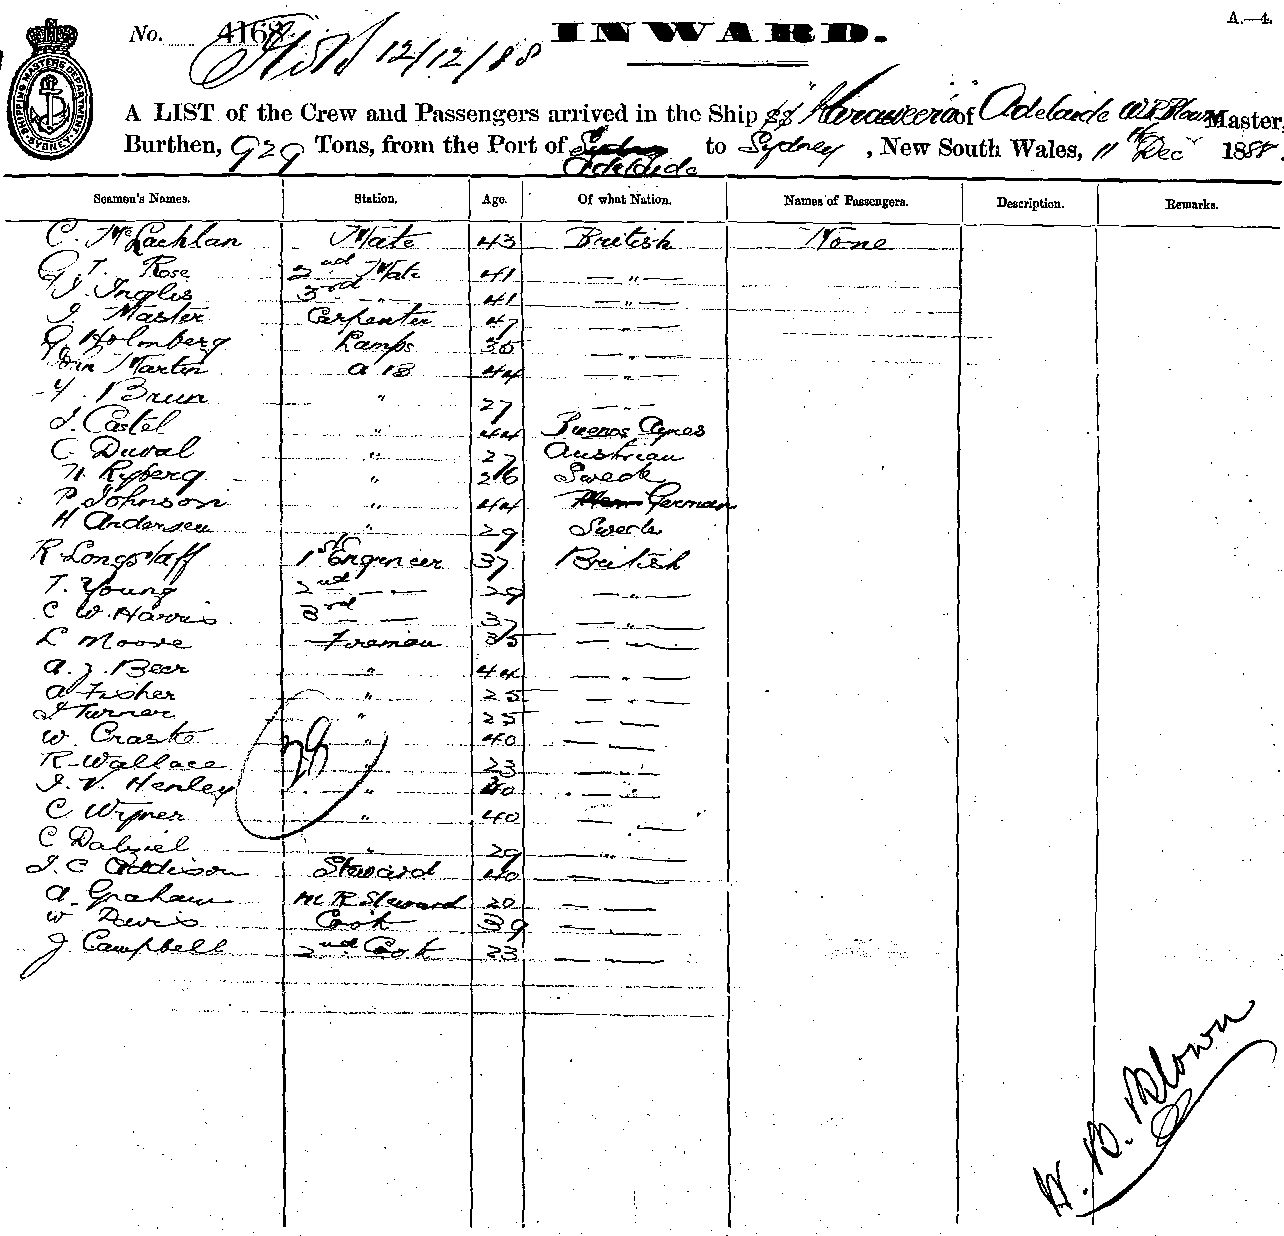 A.—4.
No. 4168 INWARD.
12/12/88
SHIPPING MASTERS DEPARTMENT SYDNEY
A LIST of the Crew and Passengers arrived in the Ship SS "Karaweera" of Adelaide Master,
Burthen, 929 Tons, from the Port of Sydney Adelaide to Sydney, New South Wales, 11th Dec 1888.
Seamen's Names. Station. Age. Of what Nation. Names of Passengers. Description. Remarks.
C. McLachlan Mate 43 British None
G T. Rose 2nd Mate 41 — " —
J. Inglis 3rd " 41 — " —
J. Master Carpenter 47 — " —
G Holmberg Lamps 35 — " —
John Martin A B 44 — " —
Y. Brun " 27 — " —
J. Castel " 44 Buenos Ayres
C. Duval " 27 Austrian
N. Ryberg " 26 Swede
P Johnson " 44 German
H Andersen " 29 Swede
R Longstaff 1st Engineer 37 British
T. Young 2nd — " — 29 — " —
C W. Harris 3rd — — 37 — " —
L Moore Fireman 35 — " —
A. J. Beer " 44 — " —
A Fisher " 25 — " —
J Turner " 25 — —
W. Craske " 40 — —
R Wallace " 23 — —
J. V. Henley " 40 — " —
C Wymer " 40 — " —
C Dalziel " 29 — " —
J. C Addison Steward 40 — —
A. Graham M R Steward 20 — —
W Davis Cook 39 — —
J Campbell 2nd Cook 23 — —
28